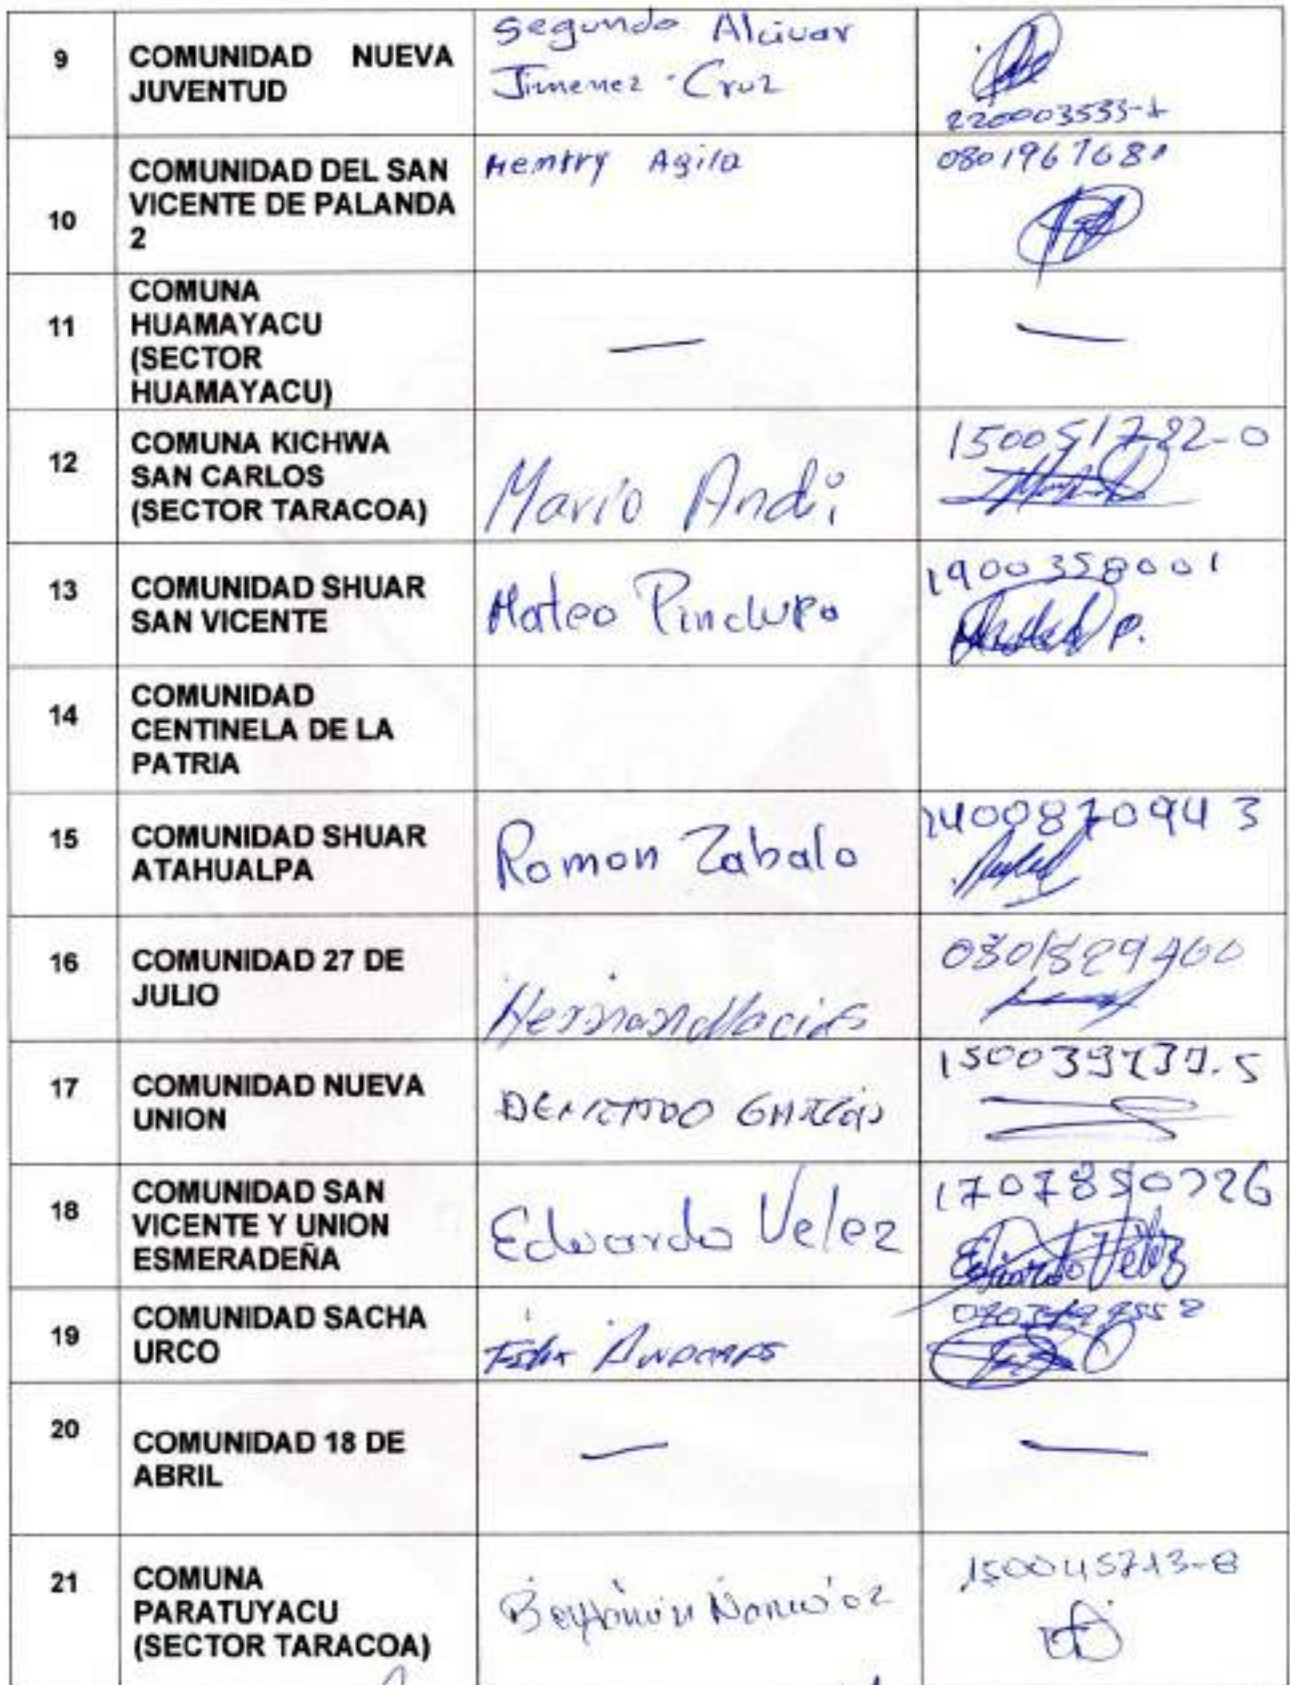 9
COMUNIDAD NUEVA
JUVENTUD
Segundo Alcivar
Jimenez Cruz
220003533-1
10
COMUNIDAD DEL SAN
VICENTE DE PALANDA
2
Hentry Agila
11
COMUNA
HUAMAYACU
(SECTOR
HUAMAYACU)
12
COMUNA KICHWA
SAN CARLOS
(SECTOR TARACOA)
Mario Andi
150051782-0
13
COMUNIDAD SHUAR
SAN VICENTE
Mateo
1900358001
14
COMUNIDAD
CENTINELA DE LA
PATRIA
15
COMUNIDAD SHUAR
ATAHUALPA
Ramon Zabala
16
COMUNIDAD 27 DE
JULIO
Hernan Macias
17
COMUNIDAD NUEVA
UNION
18
COMUNIDAD SAN
VICENTE Y UNION
ESMERADEÑA
Eduardo Velez
Eduardo Vélez
19
COMUNIDAD SACHA
URCO
20
COMUNIDAD 18 DE
ABRIL
21
COMUNA
PARATUYACU
(SECTOR TARACOA)